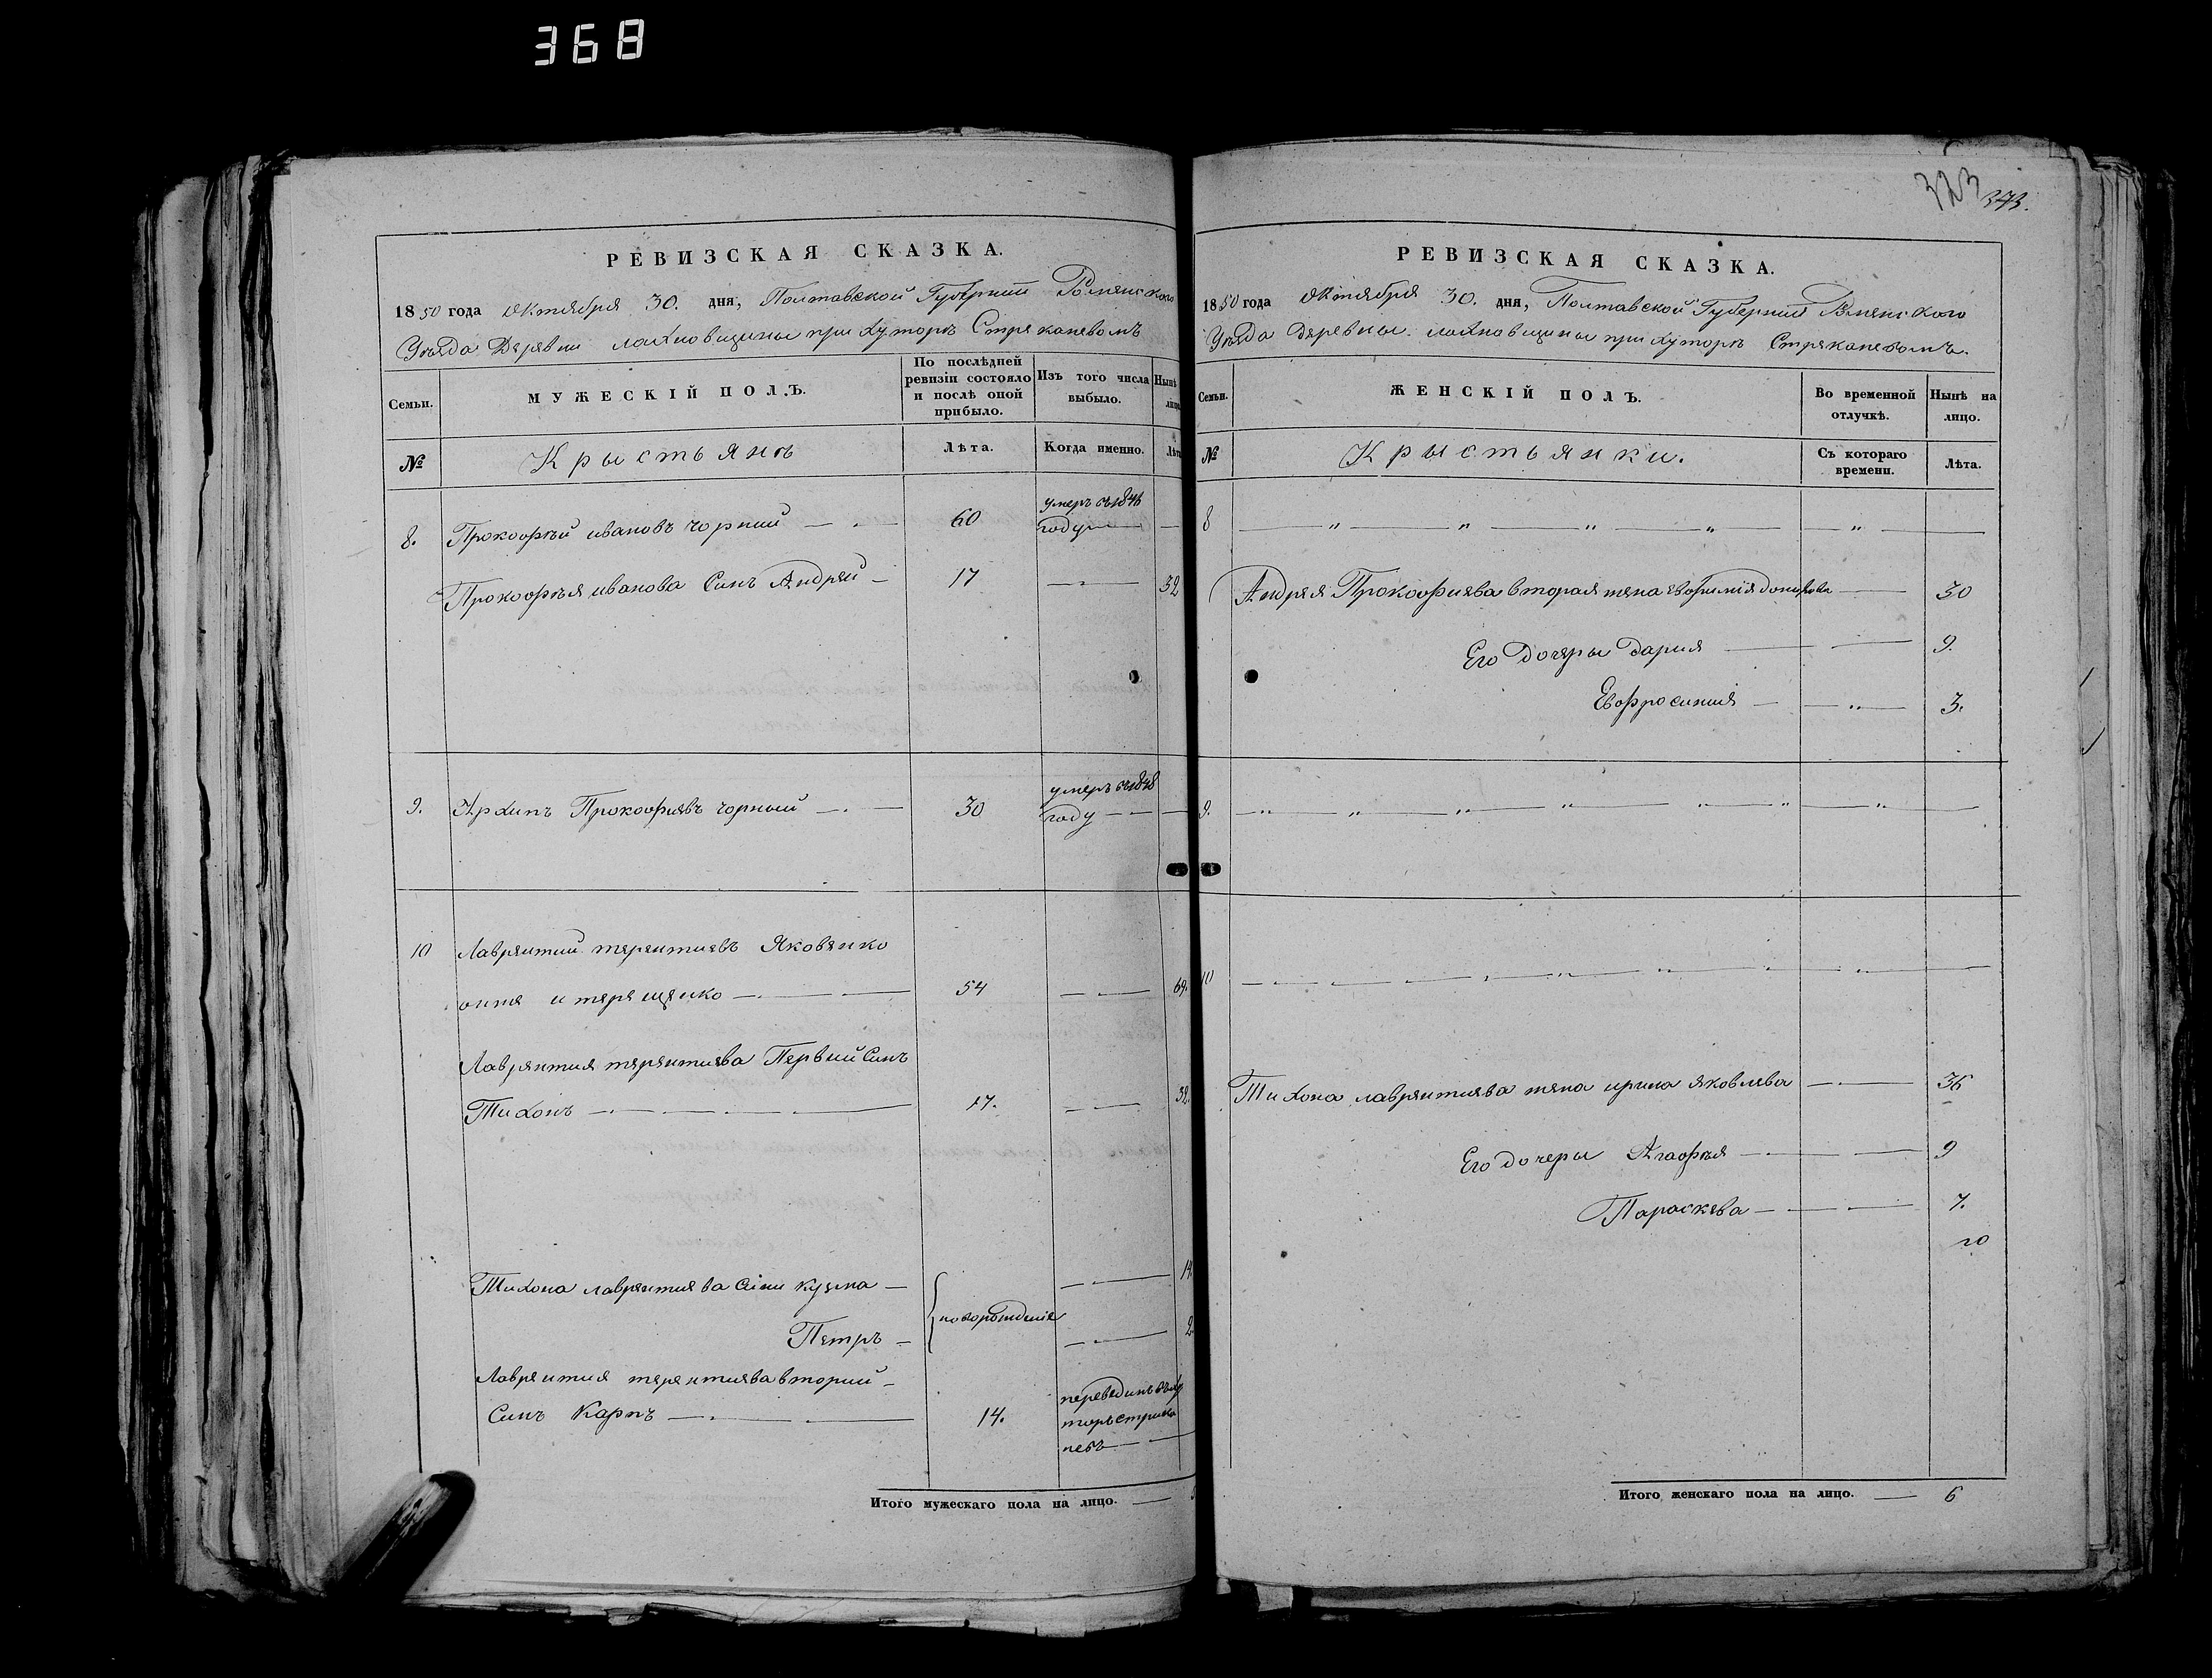 368
РЕВИЗСКАЯ СКАЗКА.
1850 года октября 30. дня, Полтавской Губернии Роменского
Уезда Деревни лохновщины при хуторе Стрякачевомъ
Семьи. МУЖЕСКІЙ ПОЛЪ. По послѣдней ревизіи состояло и послѣ оной прибыло. Изъ того числа выбыло. Нынѣ лицо
№ Крыстьянъ Лѣта. Когда именно. Лѣта
8. Прокофѣй ивановъ чорний 60 умеръ въ
году
Прокофѣя иванова Синъ Андрей 17 32
9. Архипъ Прокофиевъ чорный 30 умеръ въ 1848
году
10 Лаврентий терентиевъ Яковенко
онже и терещенко 54 69.
Лаврентия терентиева Первий Синъ
Тихонъ 17. 32.
Тихона лаврентиева Сини кузма новорожденіе 14.
Петръ 2
Лаврентия терентиева вторий
Синъ Карпъ 14. перевединъ въ ху
торъ стрика
невъ
Итого мужескаго пола на лицо.
323 373.
РЕВИЗСКАЯ СКАЗКА.
1850 года октября 30. дня, Полтавской Губернии Роменского
Уезда Деревны лохновщины при хуторе Стряканевомъ.
Семьи. ЖЕНСКІЙ ПОЛЪ. Во временной отлучкѣ. Нынѣ на лицо.
№ Крыстьянки. Съ котораго времени. Лѣта.
8
Андрея Прокофиева вторая жена евфимія 30
Его Дочеры Дария 9.
Евфросиния 3.
9.
10
Тихона лаврентиева жена ирина яковлева 36
Его дочеры Агафѣя 9
Параскева 7.
Итого женскаго пола на лицо. 6